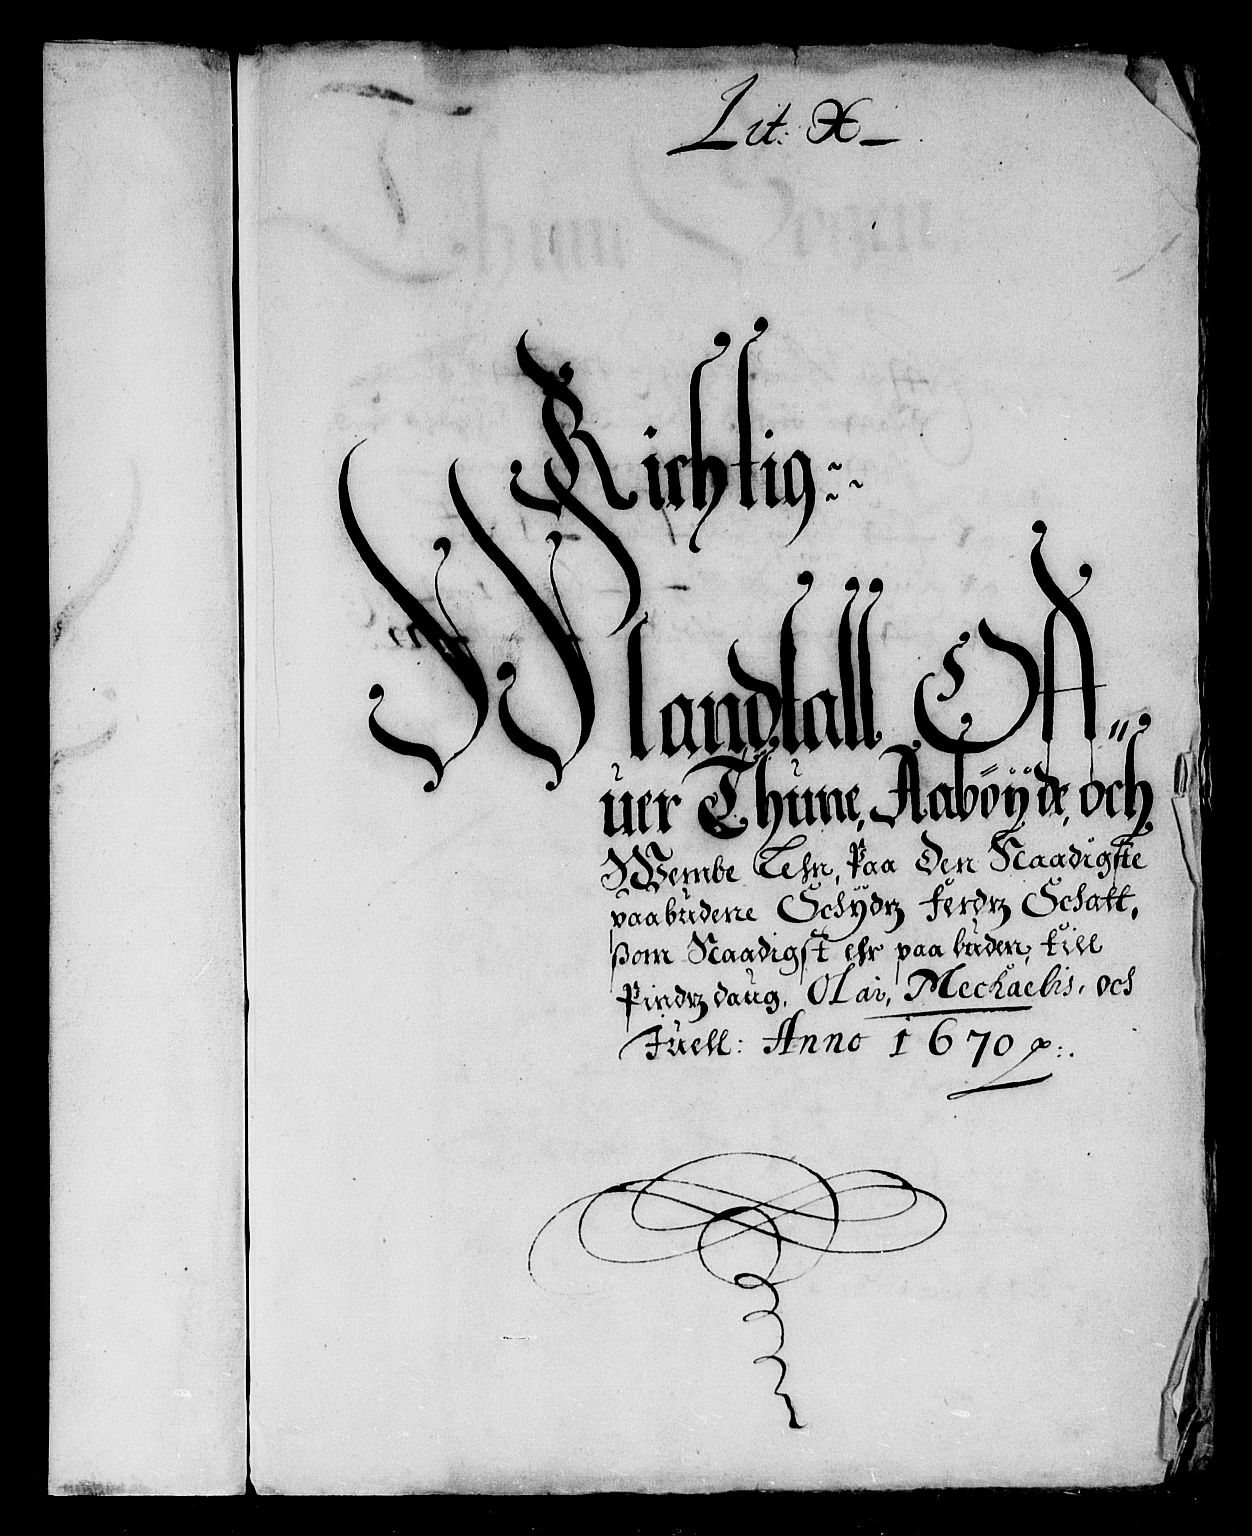 Lit: X
Richtig
Mandtall Off„
uer Thune, Aabøyde, och
Wembe Lehn, Paa den Naadigste
paabudene Schydtz ferdtz Schatt,
som Naadigst ehr paa buden, till
Pindtz daug, Olai, Meckaelis, och
Juell: Anno 1670